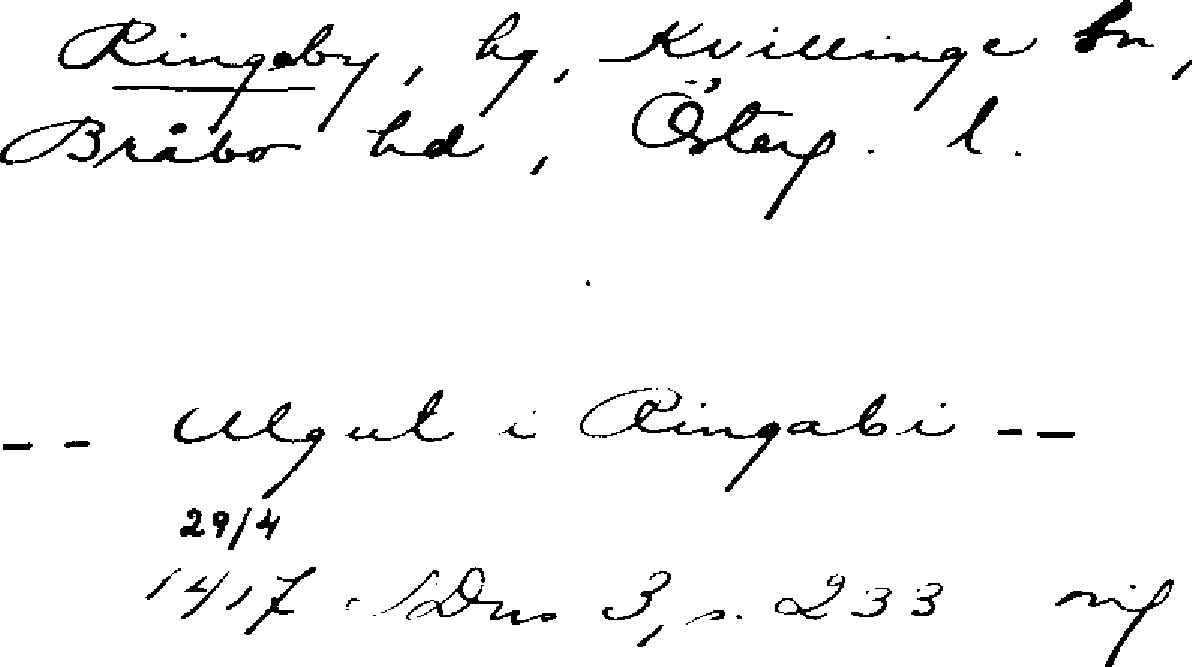 Ringeby, hg, Kvillinge sn,
Bråbo hd, Österg. l.
-- Algut i Ringabi --
29/4
1417 SDns 3, s. 233